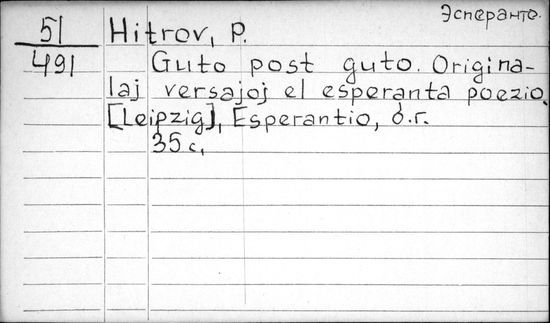 Эсперанто.
51
491
Hitrov, P.
Guto post guto. Origina-
laj versajoj el esperanta poezio.
[Leipzig], Esperantio, б.г.
35 с,